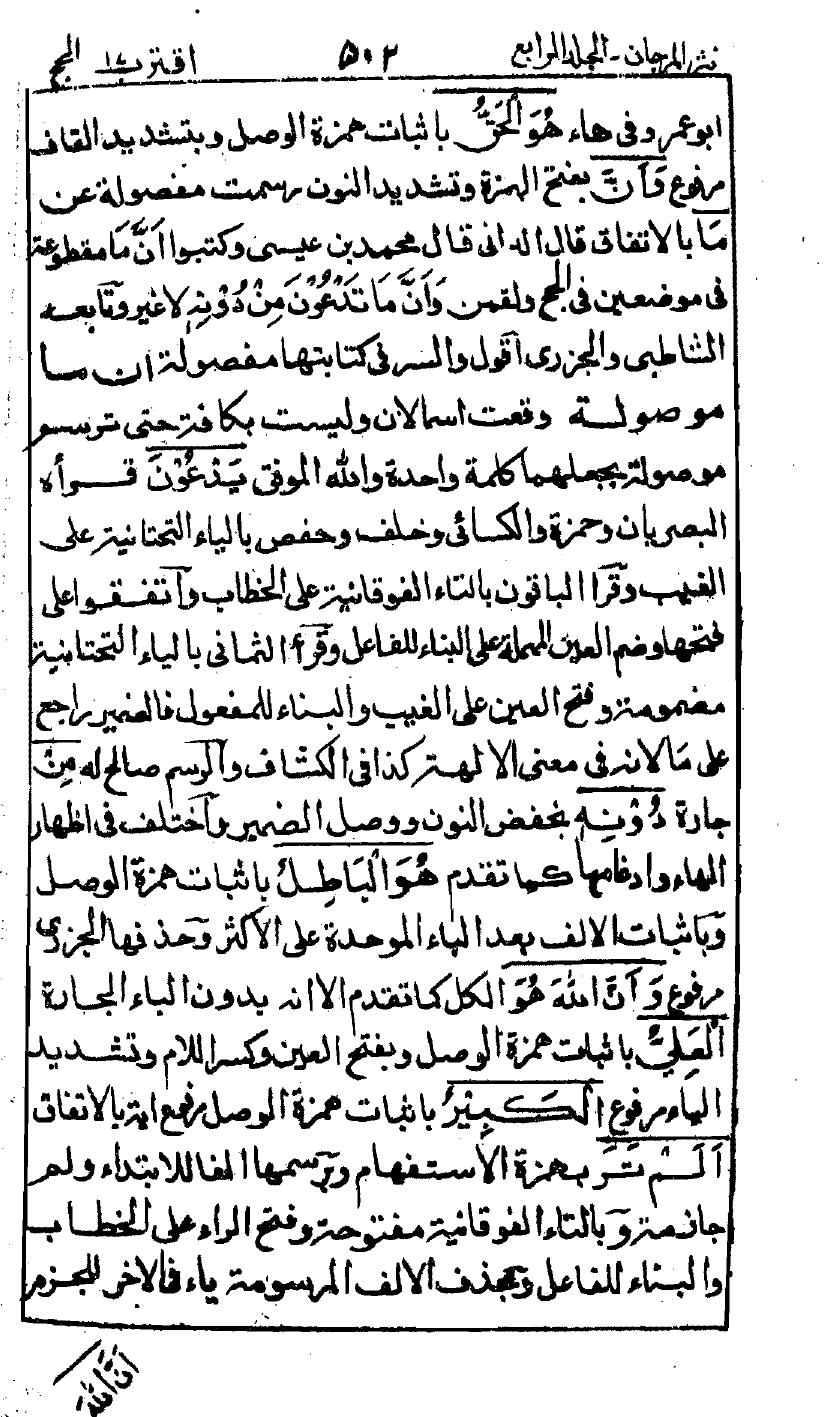 نثر المرجان - المجلد الرابع ٥٠٢ اقترب ١٧ الحج
ابو عمرو فی هاء هُوَ الْحَقُّ باثبات همزة الوصل وبتشديد القاف
مرفوع وَاَنَّ بفتح الهمزة وتشديد النون رسمت مفصولة عن
مَا بالاتفاق قال الدانی قال محمد بن عيسی وكتبوا اَنَّ مَا مقطوعة
فی موضعين فی الحج ولقمن وَاَنَّ مَا تَدْعُوْنَ مِنْ دُوْنِهٖ لا غير وتابعه
الشاطبی والجزری اقول والسر فی كتابتها مفصولة ان ما
موصولة وقعت اسما لان وليست بكافة حتی ترسم
موصولة بجعلهما كلمة واحدة والله الموفق يَدْعُوْنَ قرأه
البصريان وحمزة والكسائی وخلف وحفص بالياء التحتانية علی
الغيب وقرا الباقون بالتاء الفوقانية علی الخطاب واتفقوا علی
فتحها وضم العين المهملة علی البناء للفاعل وقرأ الثمانی بالياء التحتانية
مضمومة وفتح العين علی الغيب والبناء للمفعول فالضمير راجع
علی ما لانه فی معنی الالهة كذا فی الكشاف والرسم صالح له مِنْ
جارة دُوْنِهٖ بخفض النون ووصل الضمير واختلف فی اظهار
الهاء وادغامها كما تقدم هُوَ الْبَاطِلُ باثبات همزة الوصل
وباثبات الالف بعد الباء الموحدة علی الاكثر وحذفها الجزری
مرفوع وَاَنَّ اللّٰهَ هُوَ الكل كما تقدم الا انه بدون الباء الجارة
الْعَلِیُّ باثبات همزة الوصل وبفتح العين وكسر اللام وتشديد
الياء مرفوع الْكَبِيْرُ باثبات همزة الوصل مرفوع اية بالاتفاق
اَلَمْ تَرَ بهمزة الاستفهام وبرسمها الفا للابتداء ولم
جازمة وبالتاء الفوقانية مفتوحة وفتح الراء علی الخطاب
والبناء للفاعل وبحذف الالف المرسومة ياء فی الاخر للجزم
اَنَّ اللّٰهَ